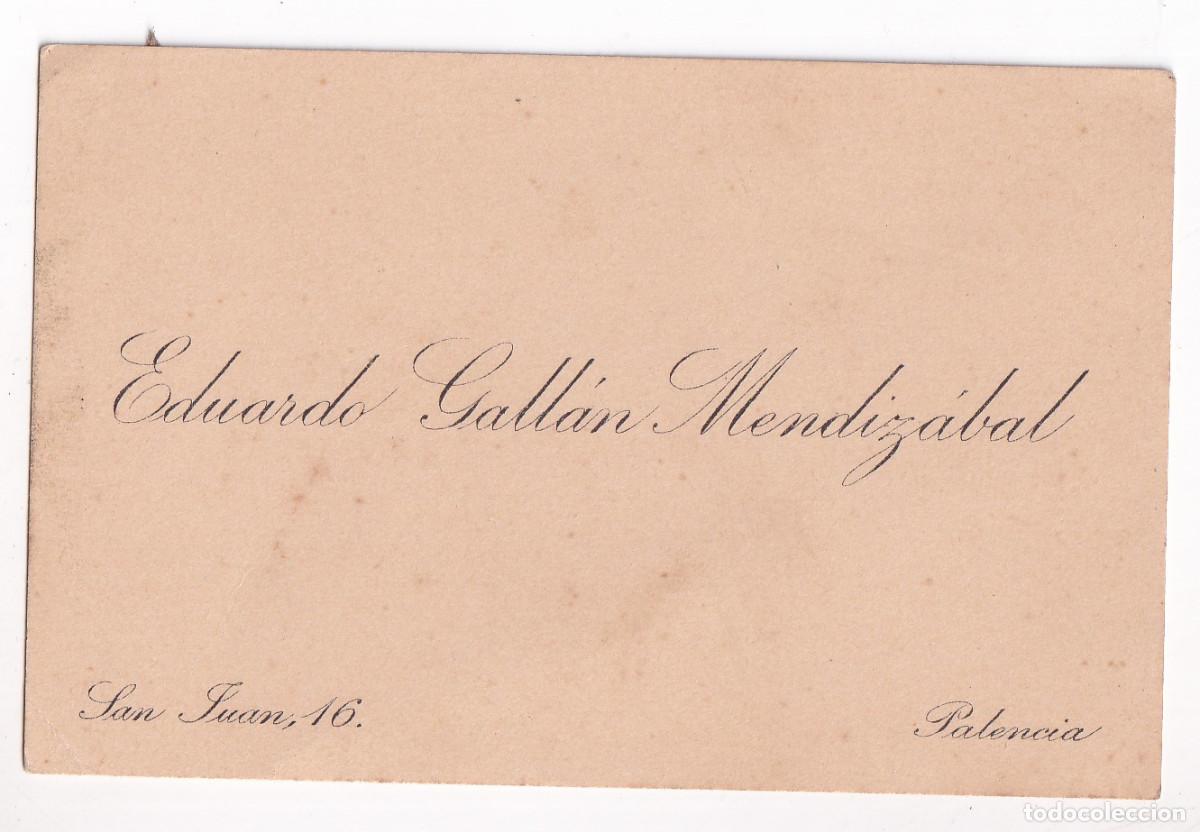 Eduardo Gallán Mendizábal
San Juan, 16.
Palencia
todocoleccion